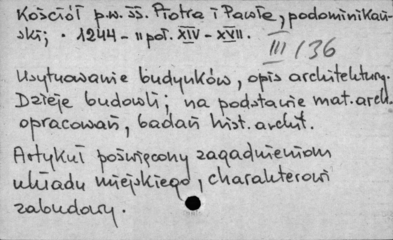 Kościół p.w. śś. Piotra i Pawła, podominikań-
ski; • 1244 - II poł. XIV - XVII.
III/36
Usytuowanie budynków, opis architektury.
Dzieje budowli; na podstawie mat. arch.
opracowań, badań hist. archit.
Artykuł poświęcony zagadnieniom
układu miejskiego, charakterowi
zabudowy.